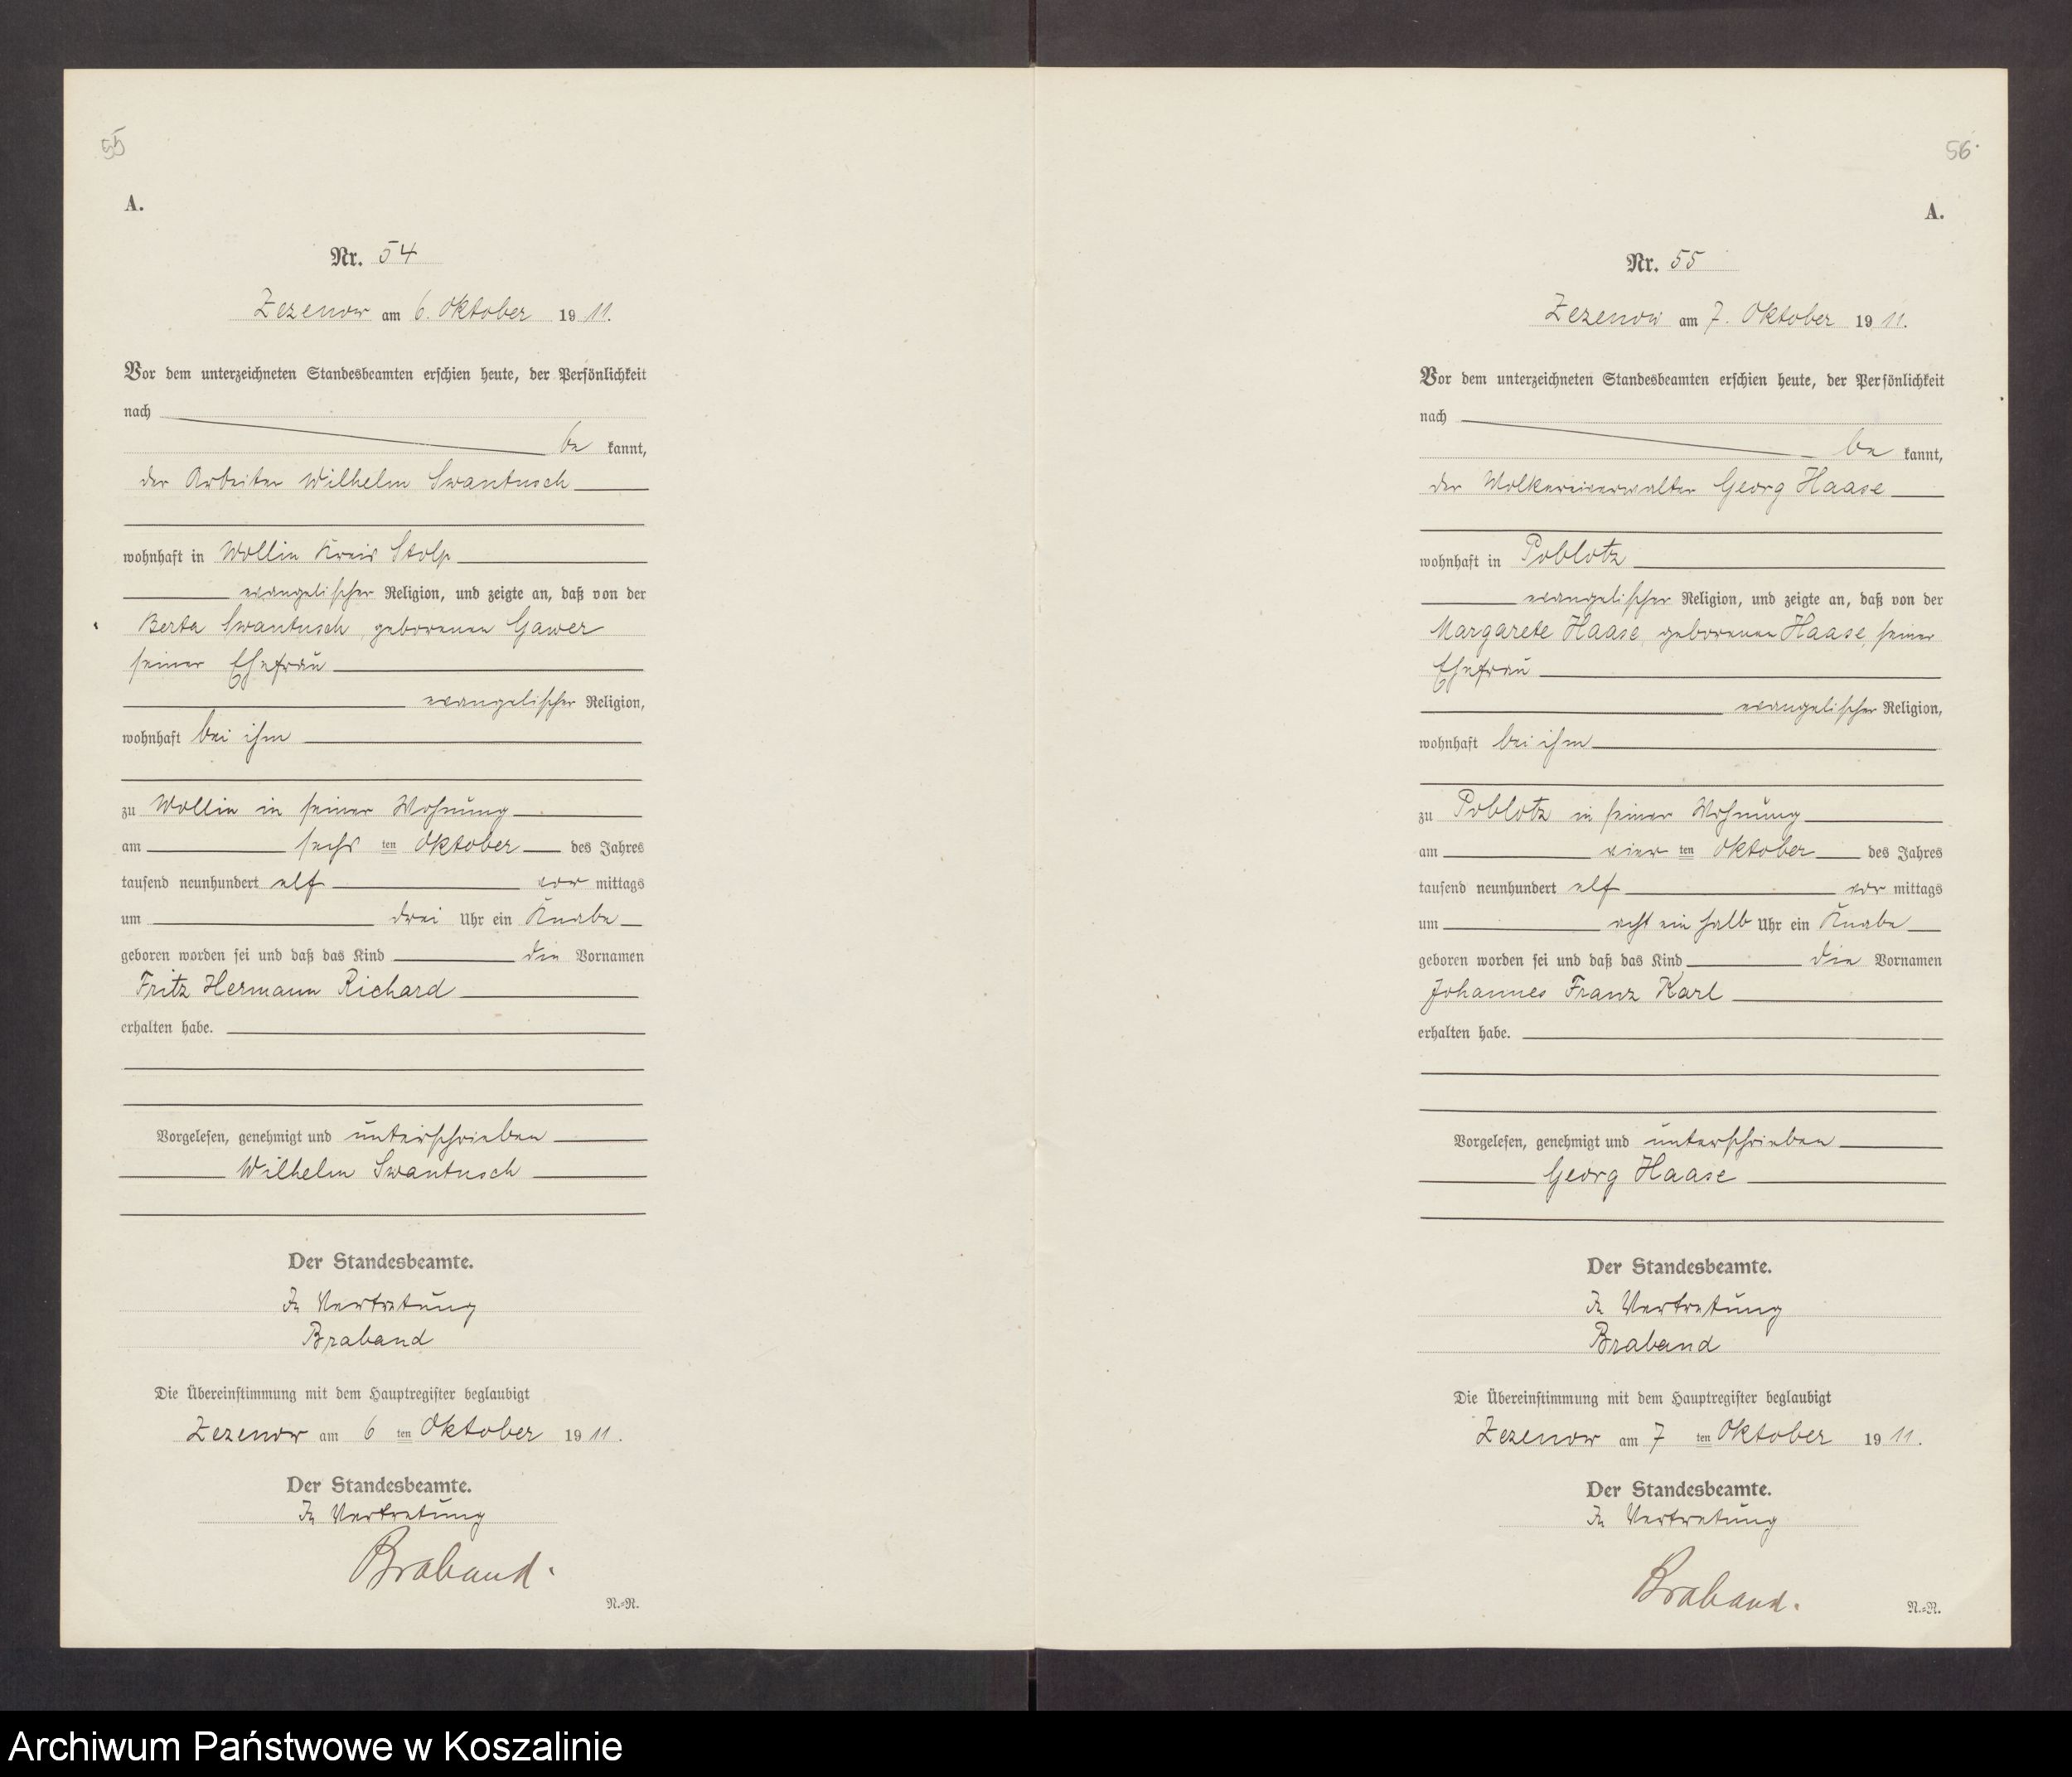 55
A.
Nr. 54
Zezenow am 6. Oktober 1911.
Vor dem unterzeichneten Standesbeamten erschien heute, der Persönlichkeit
nach
be kannt,
der Arbeiter Wilhelm Swantusch
wohnhaft in Wollin Kreis Stolp
evangelischer Religion, und zeigte an, daß von der
Berta Swantusch, geborenen Gawer
seiner Ehefrau
evangelischer Religion,
wohnhaft bei ihm
zu Wollin in seiner Wohnung
am sechsten Oktober des Jahres
tausend neunhundert elf vor mittags
um drei Uhr ein Knabe
geboren worden sei und daß das Kind die Vornamen
Fritz Hermann Richard
erhalten habe.
Vorgelesen, genehmigt und unterschrieben
Wilhelm Swantusch
Der Standesbeamte.
In Vertretung
Braband
Die Übereinstimmung mit dem Hauptregister beglaubigt
Zezenow am 6 ten Oktober 1911.
Der Standesbeamte.
In Vertretung
Braband.
N.=N.
56.
A.
Nr. 55
Zezenow am 7. Oktober 1911.
Vor dem unterzeichneten Standesbeamten erschien heute, der Persönlichkeit
nach
be kannt,
der Molkereiverwalter Georg Haase
wohnhaft in Poblotz
evangelischer Religion, und zeigte an, daß von der
Margarete Haase, geborenen Haase, seiner
Ehefrau
evangelischer Religion,
wohnhaft bei ihm
zu Poblotz in seiner Wohnung
am vierten Oktober des Jahres
tausend neunhundert elf vor mittags
um acht ein halb Uhr ein Knabe
geboren worden sei und daß das Kind die Vornamen
Johannes Franz Karl
erhalten habe.
Vorgelesen, genehmigt und unterschrieben
Georg Haase
Der Standesbeamte.
In Vertretung
Braband
Die Übereinstimmung mit dem Hauptregister beglaubigt
Zezenow am 7 ten Oktober 1911.
Der Standesbeamte.
In Vertretung
Braband.
N.=N.
Archiwum Państwowe w Koszalinie